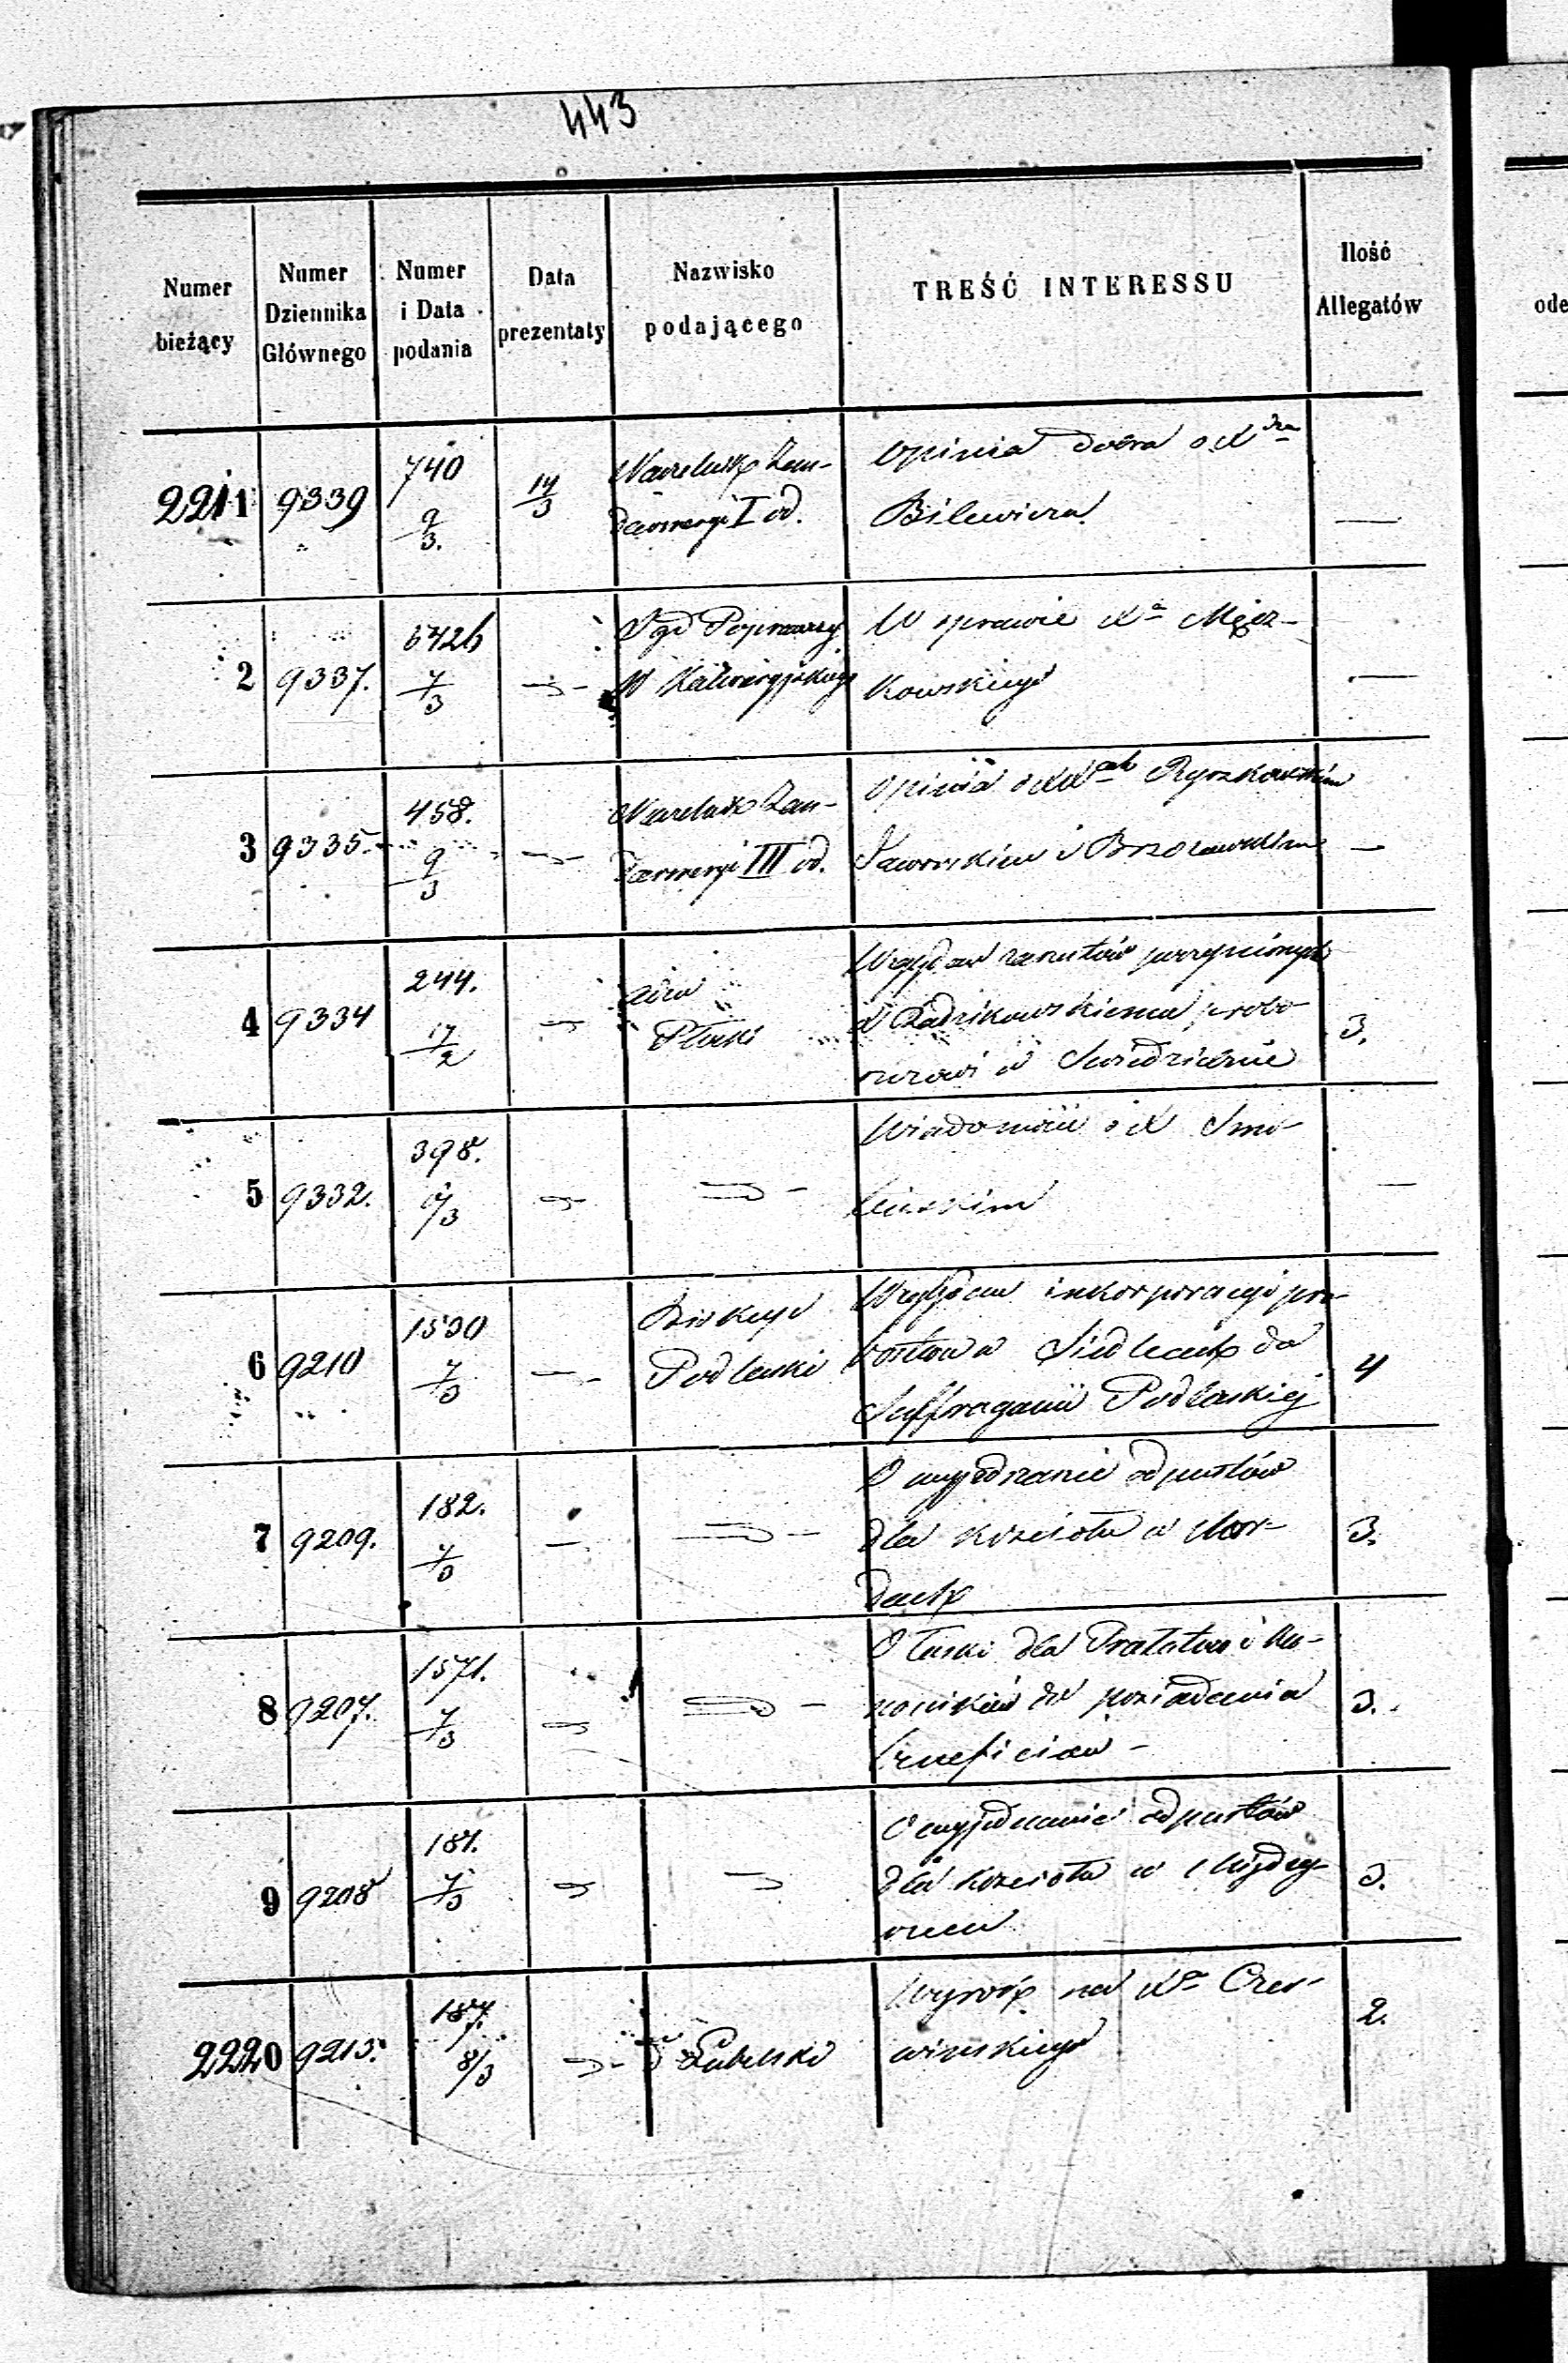 443
Numer bieżący
Numer Dziennika Głównego
Numer i Data podania
Data prezentaty
Nazwisko podającego
TREŚĆ INTERESSU
Ilość Allegatów
ode
2211 9339 740 9/3. 14/3 Naczelnik Żan-
darmeryi I od.
Opinia dobra o X dzu
Bilewicza —
2 9337. 6426 7/3 Sąd Poprawczy
W Kalwaryjskiego
W sprawie Xa Męcz-
kowskiego —
3 9335. 458. 9/3 Naczelnik Żan-
darmeryi III od.
Opinia o XX ach Ryszkowskim
Jaworskim i Brzozowskim —
4 9334 244. 17/2 Płocki
Względem zarzutów
X Radzikowskiemu probo-
szczowi w 3.
5 9332. 398. 9/3
Wiadomość o X Smo-
leńskim —
6 9210 1530 7/3 Biskup
Podlaski
Względem inkorporacyi pro-
bostwa w Siedlcach do
Suffraganii Podlaskiej 4
7 9209. 182. 7/3
O wyjednanie odpustów
dla kościoła w Mor-
dach 3.
8 9207. 1571. 7/3
O łaski dla Prałatów i Ka-
noników do posiadania
beneficiów — 3.
9 9208 181. 7/3
O wyjednanie odpustów
dla kościoła w Między-
rzecu 3.
2220 9213. 187. 8/3 Lubelski
Wyrok na Xa Czer-
wińskiego 2.